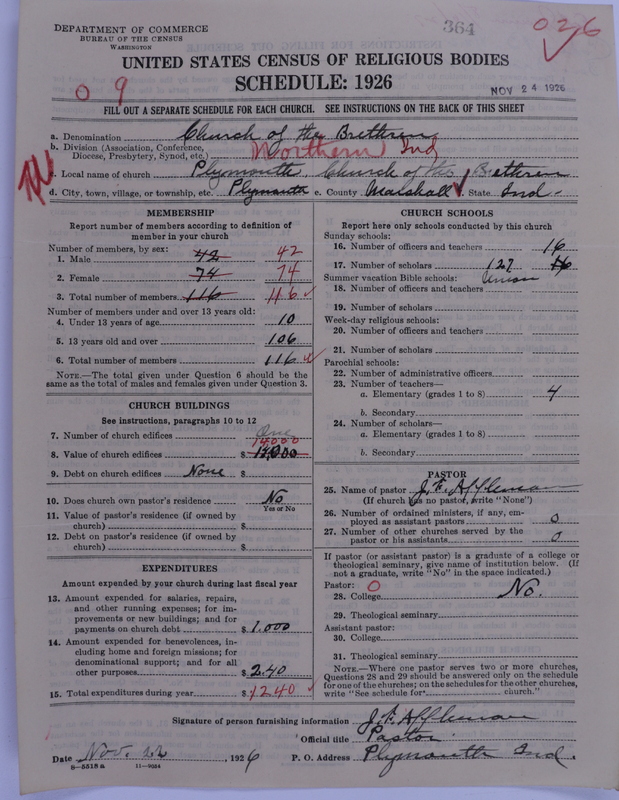 DEPARTMENT OF COMMERCE
BUREAU OF THE CENSUS
WASHINGTON
364
026
UNITED STATES CENSUS OF RELIGIOUS BODIES
SCHEDULE: 1926
09
NOV 24 1926
FILL OUT A SEPARATE SCHEDULE FOR EACH CHURCH. SEE INSTRUCTIONS ON THE BACK OF THIS SHEET
a. Denomination Church of the Brethren
b. Division (Association, Conference, Diocese, Presbytery, Synod, etc.) Northern Ind
c. Local name of church Plymouth Church of the Brethren
d. City, town, village, or township, etc. Plymouth e. County Marshall State Ind-
MEMBERSHIP
Report number of members according to definition of
member in your church
Number of members, by sex:
1. Male 42 42
2. Female 74 74
3. Total number of members 116 116
Number of members under and over 13 years old:
4. Under 13 years of age 10
5. 13 years old and over 106
6. Total number of members 116
NOTE.—The total given under Question 6 should be the
same as the total of males and females given under Question 3.
CHURCH BUILDINGS
See instructions, paragraphs 10 to 12
7. Number of church edifices One
14000
8. Value of church edifices $
9. Debt on church edifices None $
10. Does church own pastor's residence No
Yes or No
11. Value of pastor's residence (if owned by
church) $
12. Debt on pastor's residence (if owned by
church) $
EXPENDITURES
Amount expended by your church during last fiscal year
13. Amount expended for salaries, repairs,
and other running expenses; for im-
provements or new buildings; and for
payments on church debt $1.000
14. Amount expended for benevolences, in-
cluding home and foreign missions; for
denominational support; and for all
other purposes $2.40
15. Total expenditures during year $1240
CHURCH SCHOOLS
Report here only schools conducted by this church
Sunday schools:
16. Number of officers and teachers 16
17. Number of scholars 127 16
Summer vacation Bible schools: Union
18. Number of officers and teachers
19. Number of scholars
Week-day religious schools:
20. Number of officers and teachers
21. Number of scholars
Parochial schools:
22. Number of administrative officers
23. Number of teachers—
a. Elementary (grades 1 to 8) 4
b. Secondary
24. Number of scholars—
a. Elementary (grades 1 to 8)
b. Secondary
PASTOR
25. Name of pastor J. F. Appleman
(If church has no pastor, write "None")
26. Number of ordained ministers, if any, em-
ployed as assistant pastors 0
27. Number of other churches served by the
pastor or his assistants 0
If pastor (or assistant pastor) is a graduate of a college or
theological seminary, give name of institution below. (If
not a graduate, write "No" in the space indicated.)
Pastor: 0
28. College No.
29. Theological seminary
Assistant pastor:
30. College
31. Theological seminary
NOTE.—Where one pastor serves two or more churches,
Questions 28 and 29 should be answered only on the schedule
for one of the churches; on the schedules for the other churches,
write "See schedule for church."
Signature of person furnishing information J. F. Appleman
Official title Pastor
Date Nov. 22, 1926 P. O. Address Plymouth Ind.
8—5518 a 11—9034